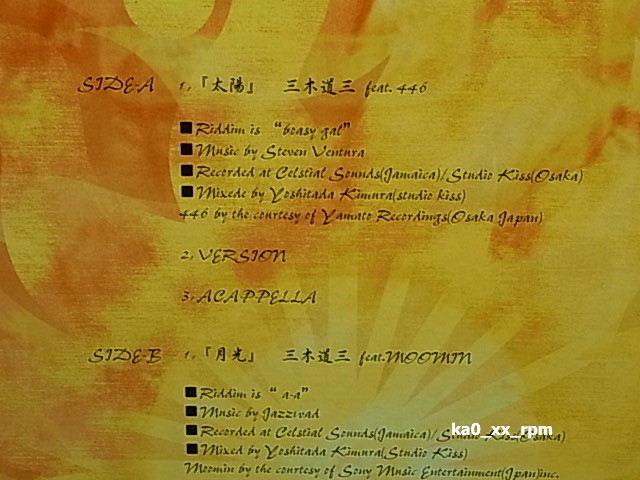 SIDE-A 1,「太陽」 三木道三 feat. 446
■Riddim is “boasy gal”
■Music by Steven Ventura
■Recorded at Celstial Sounds(Jamaica)/Studio Kiss(Osaka)
■Mixede by Yoshitada Kimura(studio kiss)
446 by the courtesy of Yamato Recordings(Osaka Japan)
2, VERSION
3, ACAPPELLA
SIDE-B 1,「月光」 三木道三 feat.MOOMIN
■Riddim is “a-a”
■Music by Jazzwad
■Recorded at Celstial Sounds(Jamaica)/Studio Kiss(Osaka)
■Mixed by Yoshitada Kimura(Studio Kiss)
Moomin by the courtesy of Sony Music Entertainment(Jpan)inc.
ka0_xx_rpm